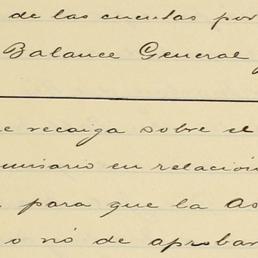 de las cuentas por
Balance General
recaiga sobre el
misario en relación
para que la As
o nó de aprobar